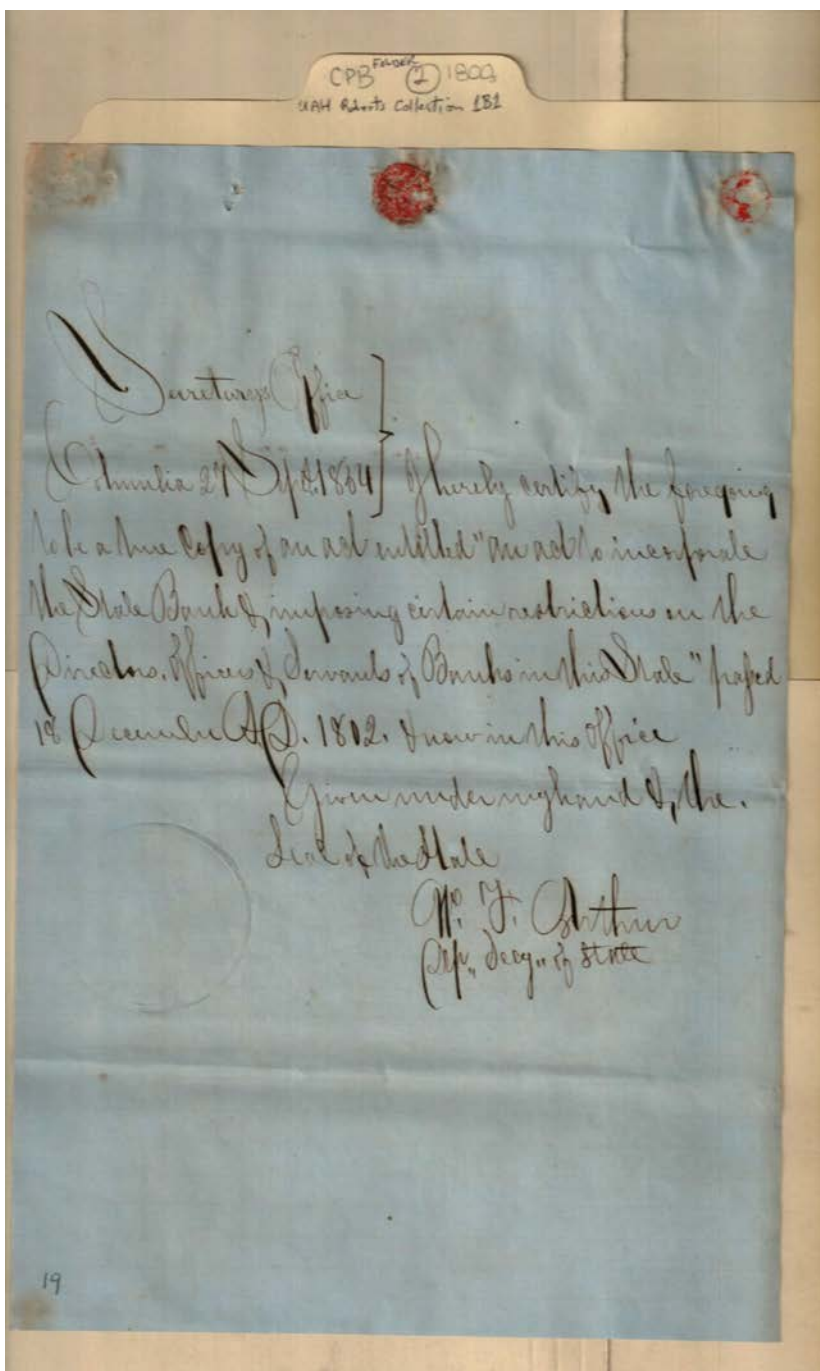 FOLDER
CPB (2) 1802
UAH Roberts Collection 1B1
Secretarys Office
Columbia 27 Sept. 1854 } I hereby certify the foregoing
to be a true Copy of an act entitled "an act to incorporate
the State Bank & imposing certain restrictions on the
Directors, officers & Servants of Banks in this State" passed
18 December A.D. 1802. & now in this office
Given under my hand & the
Seal of the State
F. Arthur
Dep,, Secy,, of State
19